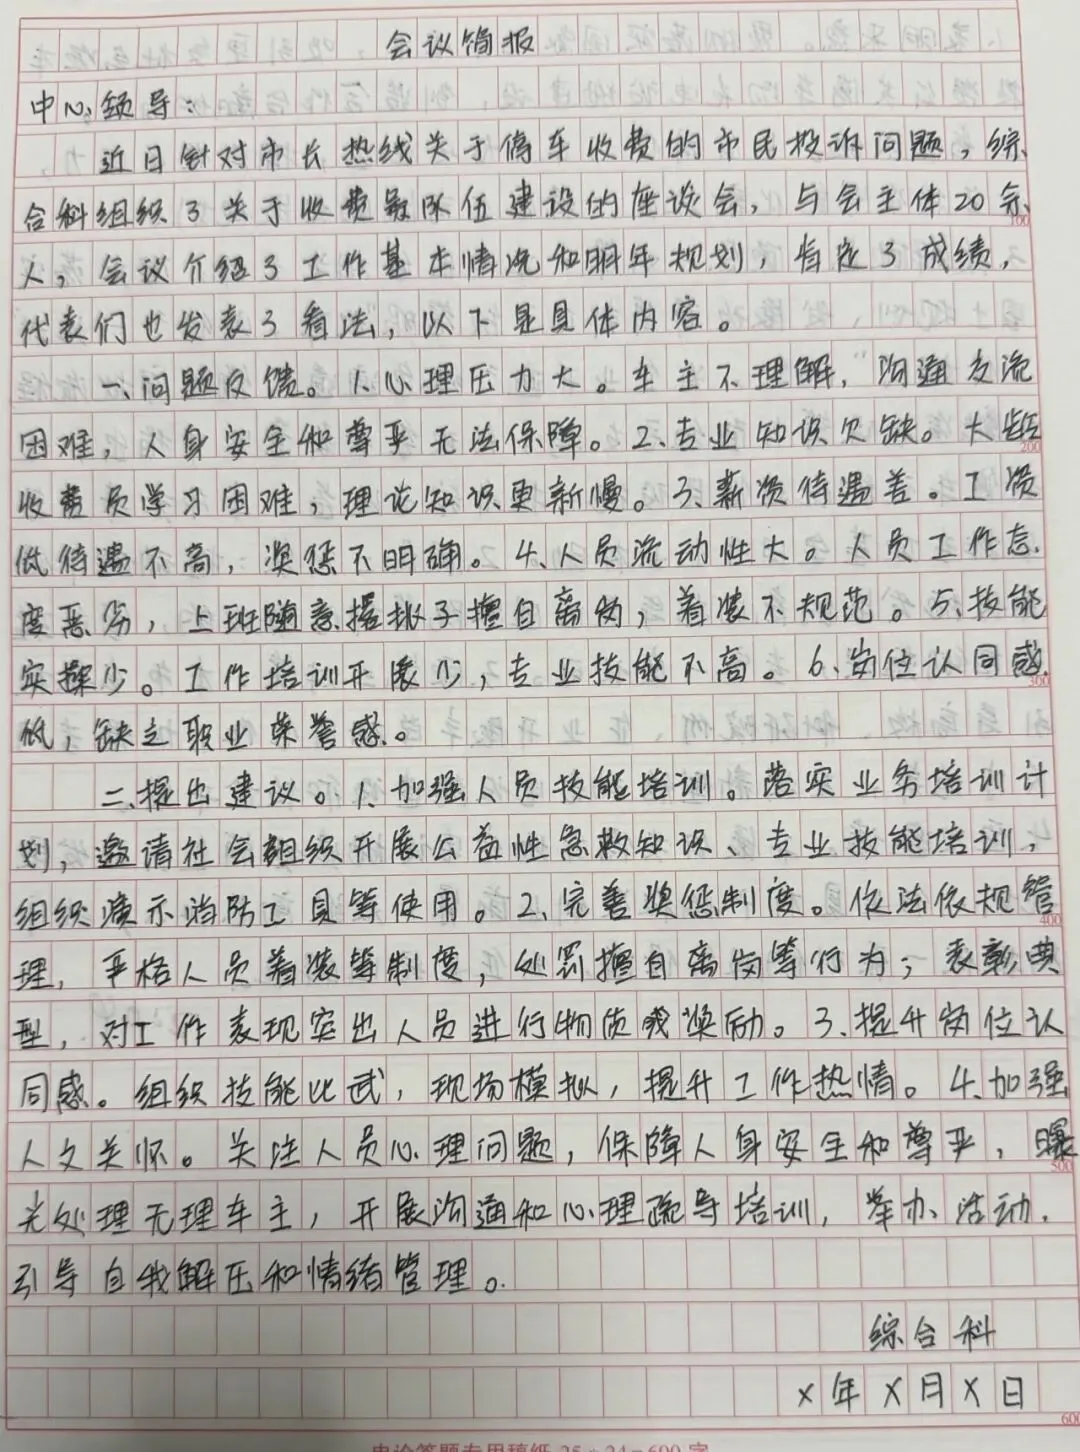 会议简报
中心领导：
近日针对市长热线关于停车收费的市民投诉问题，综
合科组织了关于收费员队伍建设的座谈会，与会主体20余
100
人，会议介绍了工作基本情况和明年规划，肯定了成绩，
代表们也发表了看法，以下是具体内容。
一、问题反馈。1、心理压力大。车主不理解，沟通交流
困难，人身安全和尊严无法保障。2、专业知识欠缺。大龄
200
收费员学习困难，理论知识更新慢。3、薪资待遇差。工资
低待遇不高，奖惩不明确。4、人员流动性大。人员工作态
度恶劣，上班随意撂挑子擅自离岗，着装不规范。5、技能
实操少。工作培训开展少，专业技能不高。6、岗位认同感
300
低，缺乏职业荣誉感。
二、提出建议。1、加强人员技能培训。落实业务培训计
划，邀请社会组织开展公益性急救知识、专业技能培训，
组织演示消防工具等使用。2、完善奖惩制度。依法依规管
400
理，严格人员着装等制度，处罚擅自离岗等行为；表彰典
型，对工作表现突出人员进行物质或奖励。3、提升岗位认
同感。组织技能比武，现场模拟，提升工作热情。4、加强
人文关怀。关注人员心理问题，保障人身安全和尊严，曝
500
光处理无理车主，开展沟通和心理疏导培训，举办活动，
引导自我解压和情绪管理。
综合科
X年X月X日
600
申论答题专用稿纸 25*24=600字